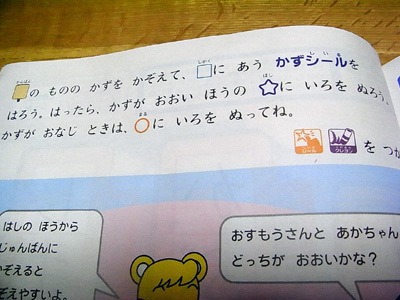 かんばん しかく しいる
の ものの かずを かぞえて、□に あう かずシールを
ほし
はろう。はったら、かずが おおい ほうの ☆に いろを ぬろう。
まる
かずが おなじ ときは、○に いろを ぬってね。
シール クレヨン を つか
はしの ほうから
じゅんばんに
ぞえると
ぞえやすいよ。
おすもうさんと あかちゃん
どっちが おおいかな?